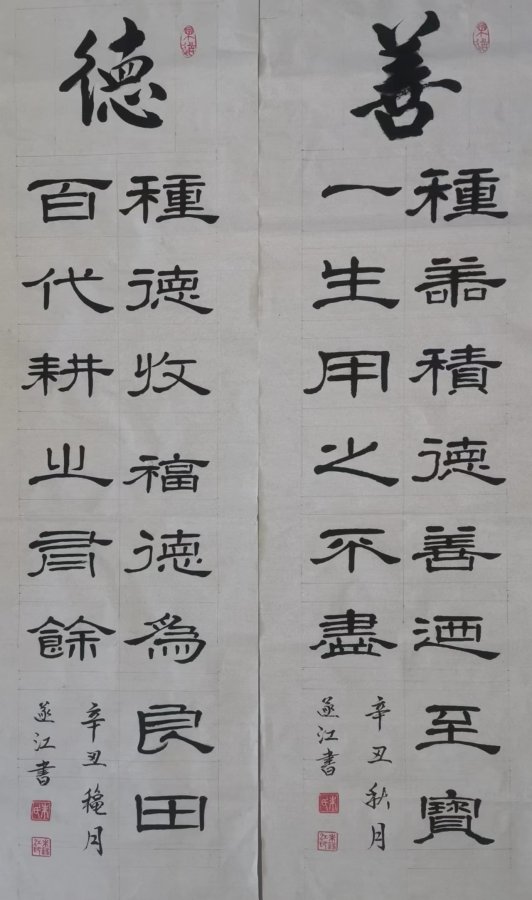 善
種善積德善迺至寶
一生用之不盡
辛丑秋月
遂江書
德
種德收福德爲良田
百代耕之有餘
辛丑穐月
遂江書